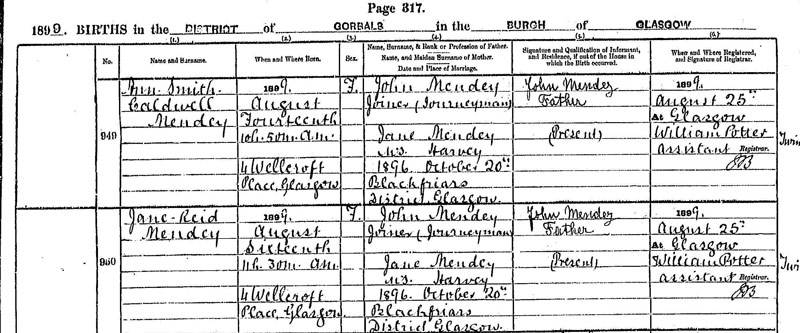 Page 317.
1899. BIRTHS in the DISTRICT of GORBALS in the BURGH of GLASGOW
(1.) (2.) (3.) (4.) (5.) (6.)
No. Name and Surname. When and Where Born. Sex. Name, Surname, & Rank or Profession of Father. Name, and Maiden Surname of Mother. Date and Place of Marriage. Signature and Qualification of Informant, and Residence, if out of the House in which the Birth occurred. When and Where Registered, and Signature of Registrar.
Ann Smith 1899. F. John Mendey John Mendey 1899.
Caldwell August Joiner (Journeyman) Father August 25th
Mendey Fourteenth At Glasgow
949 10h. 50m. A.M. Jane Mendey (Present) William Potter Twin
M.S. Harvey assistant Registrar.
4 Wellcroft 1896. October 20th JB
Place, Glasgow Blackfriars
District Glasgow.
Jane Reid 1899. F. John Mendey John Mendey 1899.
Mendey August Joiner (Journeyman) Father August 25th
Sixteenth At Glasgow
950 11h. 30m. A.M. Jane Mendey (Present) William Potter Twi
M.S. Harvey assistant Registrar.
4 Wellcroft 1896. October 20th JB
Place, Glasgow Blackfriars
District Glasgow.